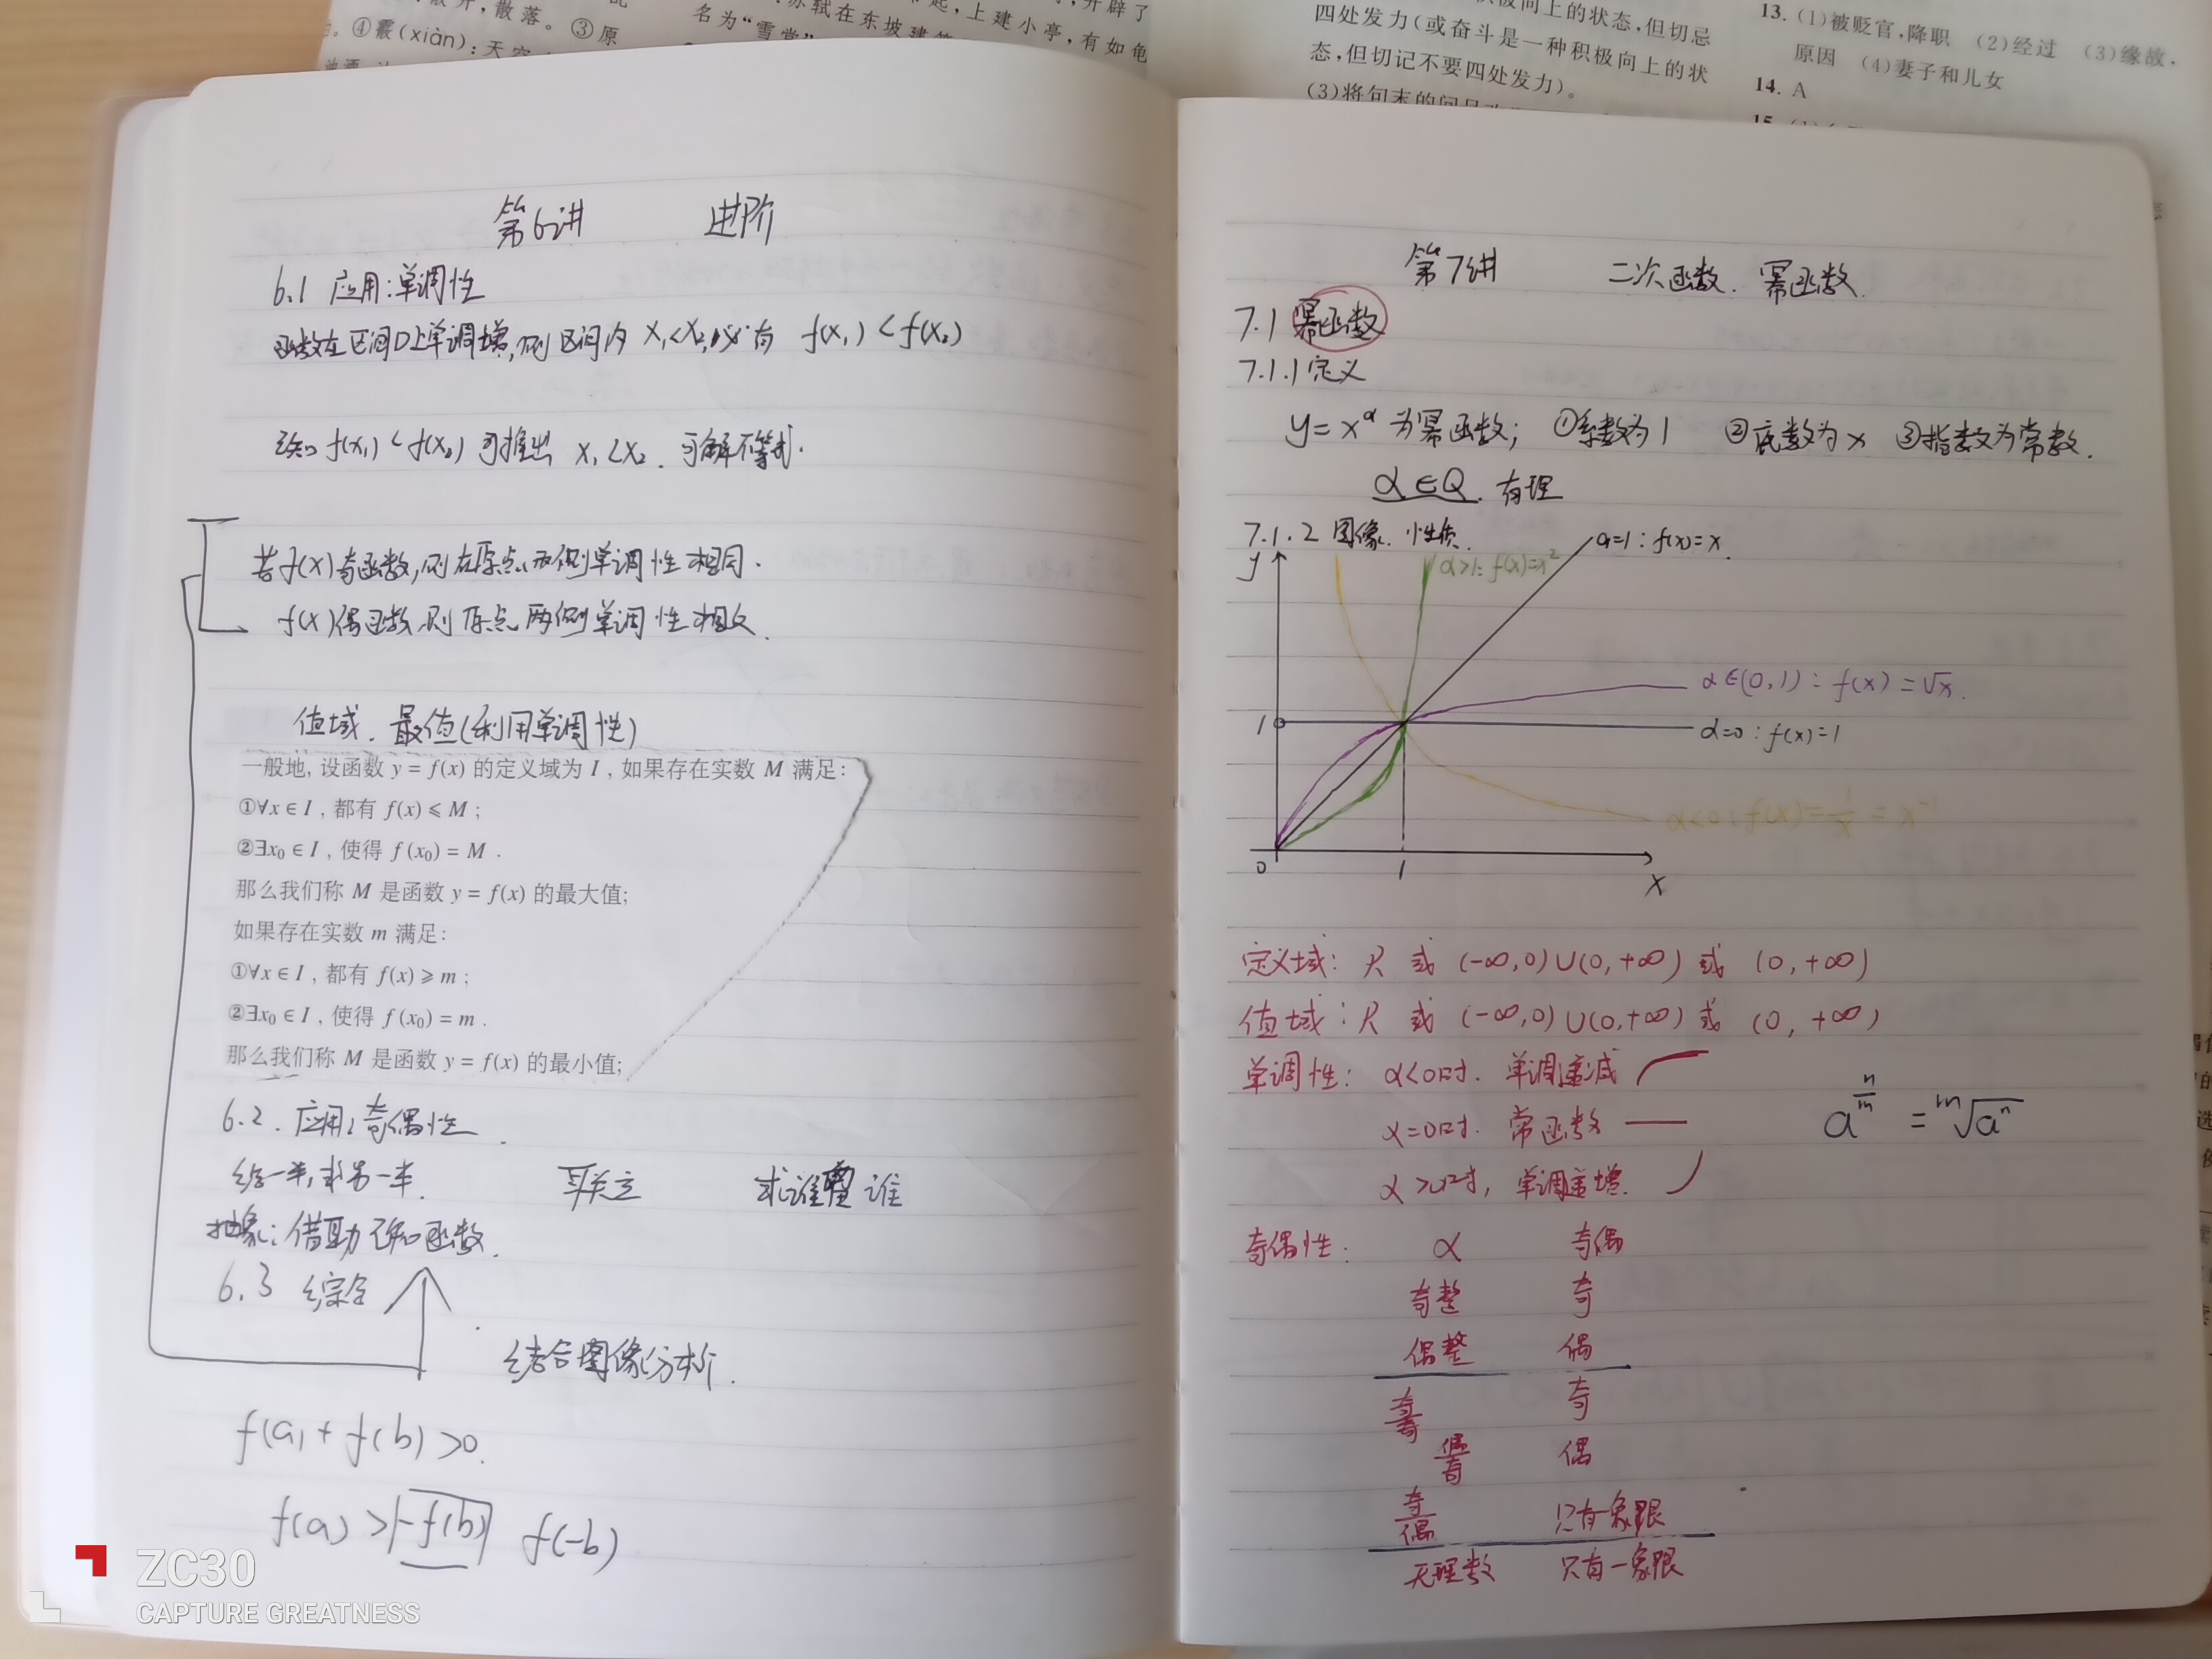 散开，散落。③原
④霰(xiàn)：天空
苏轼在东坡建筑
起，上建小亭，有如龟
名为“雪堂”
开辟了
积极向上的状态，但切忌
四处发力(或奋斗是一种积极向上的状
态，但切记不要四处发力)。
(3)将句末的问号改
13. (1)被贬官，降职 (2)经过 (3)缘故，
原因 (4)妻子和儿女
14. A
15.
第6讲 进阶
6.1 应用：单调性
函数在区间D上单调增，则区间内 x₁<x₂，必有 f(x₁)<f(x₂)
已知 f(x₁)<f(x₂) 可推出 x₁<x₂. 可解不等式.
若f(x)奇函数，则在原点两侧单调性相同.
f(x)偶函数，则原点两侧单调性相反.
值域. 最值(利用单调性)
一般地, 设函数 y = f(x) 的定义域为 I , 如果存在实数 M 满足:
①∀x ∈ I , 都有 f(x) ⩽ M ;
②∃x₀ ∈ I , 使得 f(x₀) = M .
那么我们称 M 是函数 y = f(x) 的最大值;
如果存在实数 m 满足:
①∀x ∈ I , 都有 f(x) ⩾ m ;
②∃x₀ ∈ I , 使得 f(x₀) = m .
那么我们称 M 是函数 y = f(x) 的最小值;
6.2. 应用：奇偶性.
给一半，求另一半. 联立 求谁 谁
抽象：借助已知函数.
6.3 综合
结合图像分析.
f(a) + f(b) >0.
f(a) > -f(b) f(-b)
ZC30
CAPTURE GREATNESS
第7讲 二次函数. 幂函数.
7.1 幂函数
7.1.1 定义
y=x^α 为幂函数； ①系数为1 ②底数为x ③指数为常数.
α∈Q. 有理
7.1.2 图像. 性质.
y
α=1：f(x)=x.
α>1：f(x)=x²
α∈(0,1)：f(x)=√x.
1
α=0：f(x)=1
α<0：f(x)=1/x=x⁻¹
0 1 x
定义域：R 或 (-∞,0)∪(0,+∞) 或 (0,+∞)
值域：R 或 (-∞,0)∪(0,+∞) 或 (0,+∞)
单调性：α<0时. 单调递减
α=0时. 常函数
α>0时，单调递增.
a^(n/m) = ᵐ√aⁿ
奇偶性： α 奇偶
奇整 奇
偶整 偶
奇/奇 奇
偶/奇 偶
奇/偶 只有一象限
无理数 只有一象限